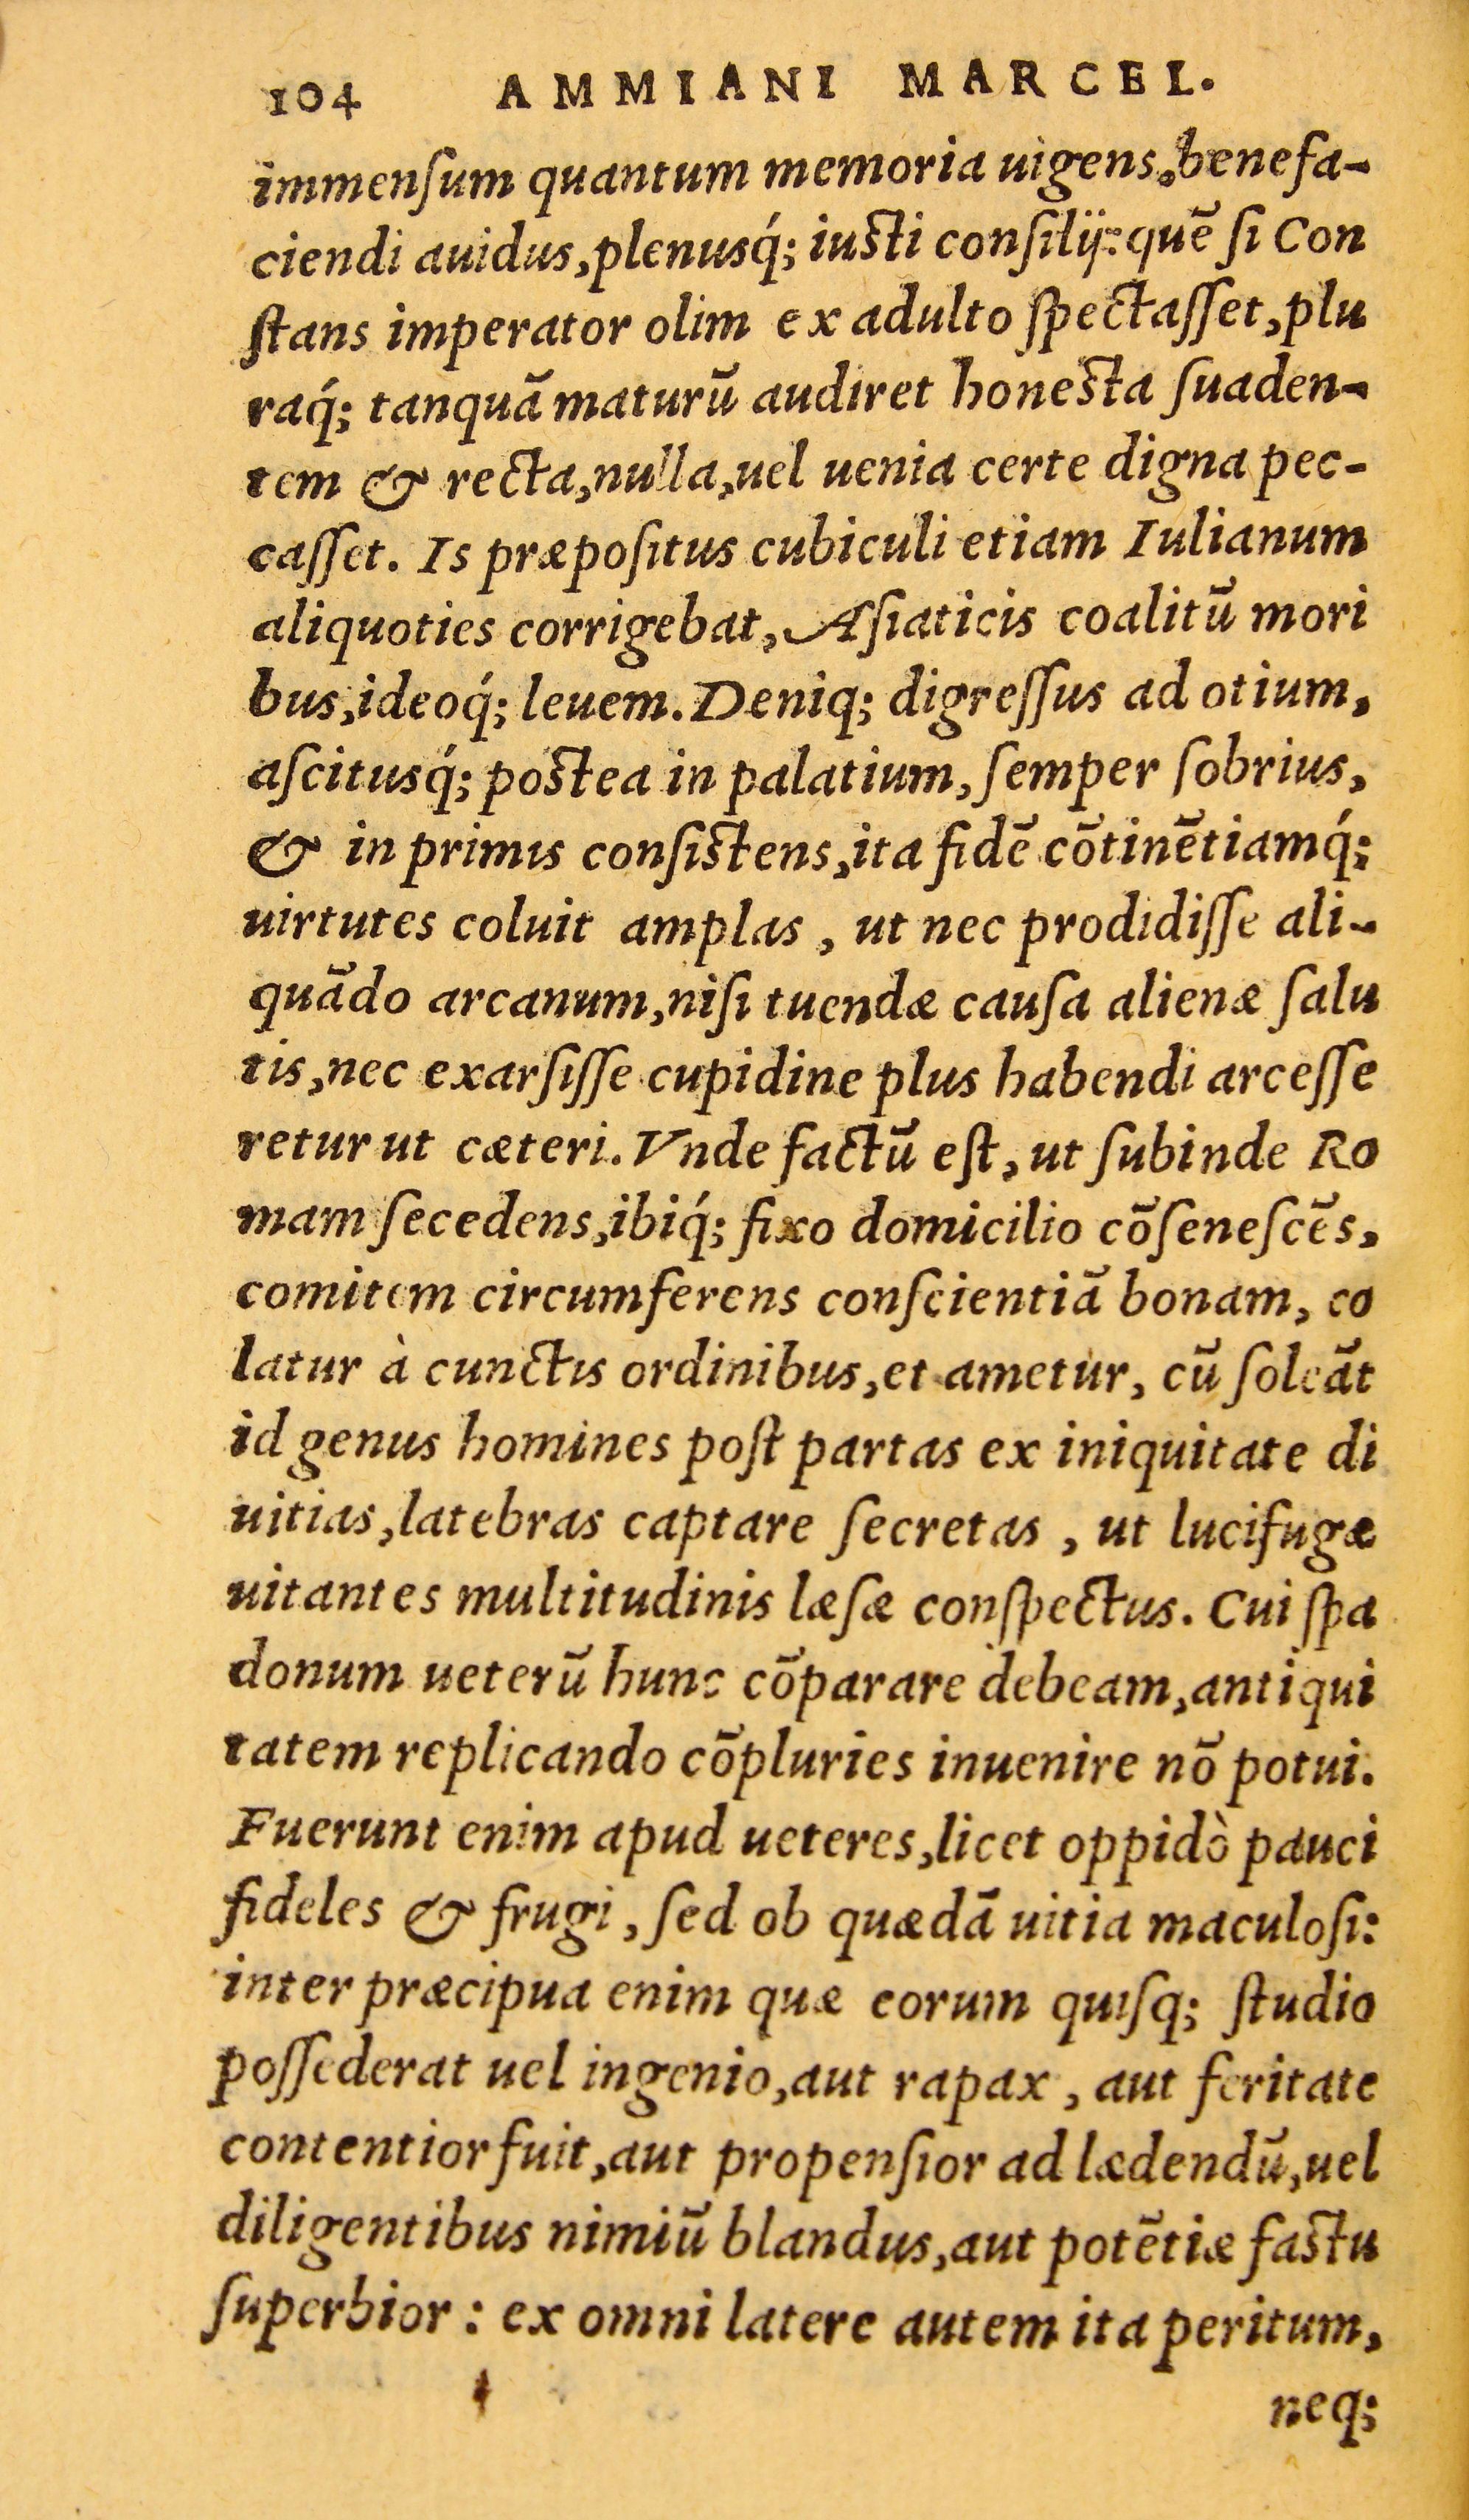 104 AMMIANI MARCEL.
immenſum quantum memoria uigens, benefa-
ciendi auidus, plenusq́; iuſti conſilij: quē ſi Con
ſtans imperator olim ex adulto ſpectaſſet, plu
raq́; tanquā maturū audiret honeſta ſuaden-
tem & recta, nulla, uel uenia certe digna pec-
caſſet. Is præpoſitus cubiculi etiam Iulianum
aliquoties corrigebat, Aſiaticis coalitū mori
bus, ideoq́; leuem. Deniq; digreſſus ad otium,
aſcitusq́; poſtea in palatium, ſemper ſobrius,
& in primis conſiſtens, ita fidē cōtinētiamq́;
uirtutes coluit amplas, ut nec prodidiſſe ali-
quādo arcanum, niſi tuendæ cauſa alienæ ſalu
tis, nec exarſiſſe cupidine plus habendi arceſſe
retur ut cæteri. Vnde factū eſt, ut ſubinde Ro
mam ſecedens, ibiq́; fixo domicilio cōſeneſcēs,
comitem circumferens conſcientiā bonam, co
latur à cunctis ordinibus, et ametur, cū ſoleāt
id genus homines poſt partas ex iniquitate di
uitias, latebras captare ſecretas, ut lucifugæ
uitantes multitudinis læſæ conſpectus. Cui ſpa
donum ueterū hunc cōparare debeam, antiqui
tatem replicando cōpluries inuenire nō potui.
Fuerunt enim apud ueteres, licet oppidò pauci
fideles & frugi, ſed ob quædā uitia maculoſi:
inter præcipua enim quæ eorum quiſq; ſtudio
poſſederat uel ingenio, aut rapax, aut feritate
contentior fuit, aut propenſior ad lædendū, uel
diligentibus nimiū blandus, aut potētiæ faſtu
ſuperbior: ex omni latere autem ita peritum,
neq;